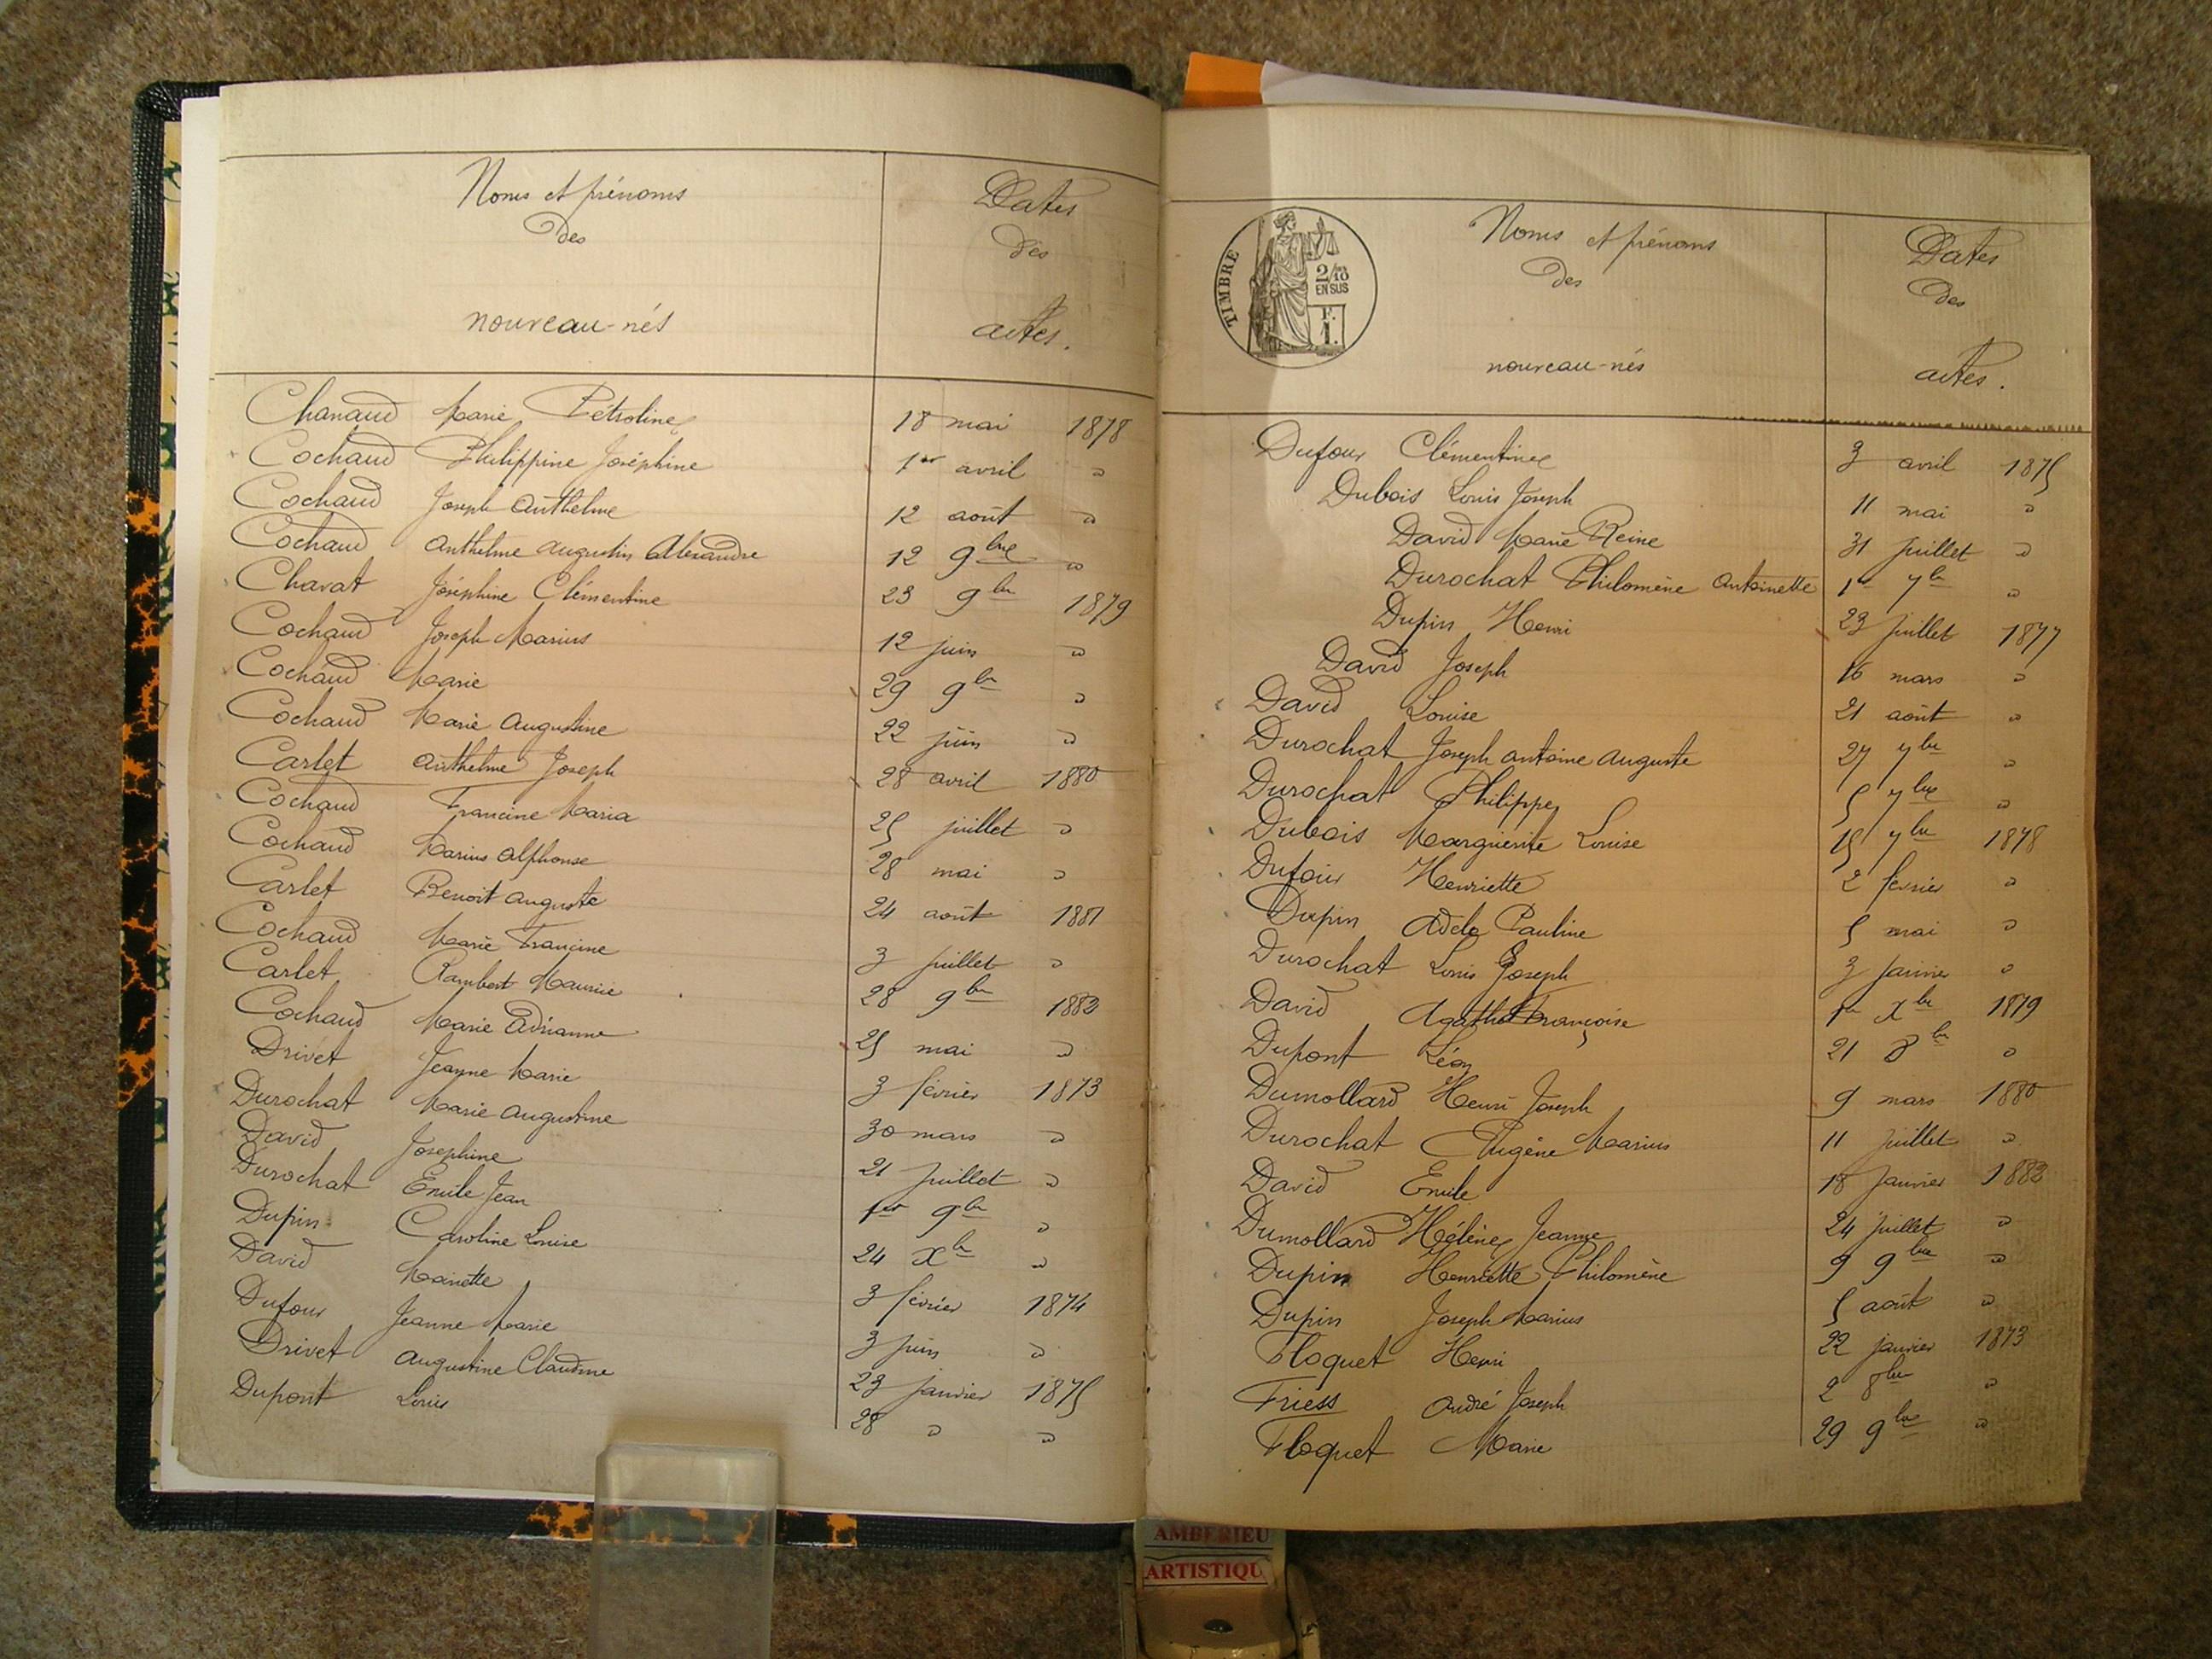 Noms et prénoms
des
nouveau-nés
Dates
des
actes.
Chanaud Marie Pétroline 18 mai 1878
Cochaud Philippine Joséphine 1er avril "
Cochaud Joseph Anthelme 12 août "
Cochaud Anthelme Augustin Alexandre 12 9bre "
Chavat Joséphine Clémentine 23 9bre 1879
Cochaud Joseph Marius 12 juin "
Cochaud Marie 29 9bre "
Cochaud Marie Augustine 22 juin "
Carlet Anthelme Joseph 28 avril 1880
Cochaud Francine Maria 25 juillet "
Cochaud Marius Alphonse 28 mai "
Carlet Benoit Auguste 24 août 1881
Cochaud Marie Francine 3 juillet "
Carlet Rambert Maurice 28 9bre 1882
Cochaud Marie Adrianne 25 mai "
Drivet Jeanne Marie 3 février 1873
Durochat Marie Augustine 30 mars "
David Josephine 21 juillet "
Durochat Emile Jean 1er 9bre "
Dupin Caroline Louise 24 Xbre "
David Mariette 3 février 1874
Dufour Jeanne Marie 3 juin "
Drivet Augustine Claudine 23 janvier 1875
Dupont Louis 28 " "
TIMBRE
2/10
EN SUS
F.
1.
Noms et prénoms
des
nouveau-nés
Dates
des
actes.
Dufour Clémentine 3 avril 1875
Dubois Louis Joseph 11 mai "
David Marie Reine 31 juillet "
Durochat Philomène Antoinette 1er 7bre "
Dupin Henri 23 juillet 1877
David Joseph 16 mars "
David Louise 21 août "
Durochat Joseph Antoine Auguste 27 7bre "
Durochat Philippe 5 7bre "
Dubois Marguerite Louise 15 7bre 1878
Dufour Henriette 2 février "
Dupin Adèle Pauline 5 mai "
Durochat Louis Joseph 3 janvier "
David Agathe Françoise 1er Xbre 1879
Dupont Léon 21 8bre "
Dumollard Henri Joseph 9 mars 1880
Durochat Eugène Marius 11 juillet "
David Emile 18 janvier 1882
Dumollard Hélène Jeanne 24 juillet "
Dupin Henriette Philomène 9 9bre "
Dupin Joseph Marius 5 août "
Floquet Henri 22 janvier 1873
Friess André Joseph 2 8bre "
Floquet Marie 29 9bre "
AMBERIEU
ARTISTIQU